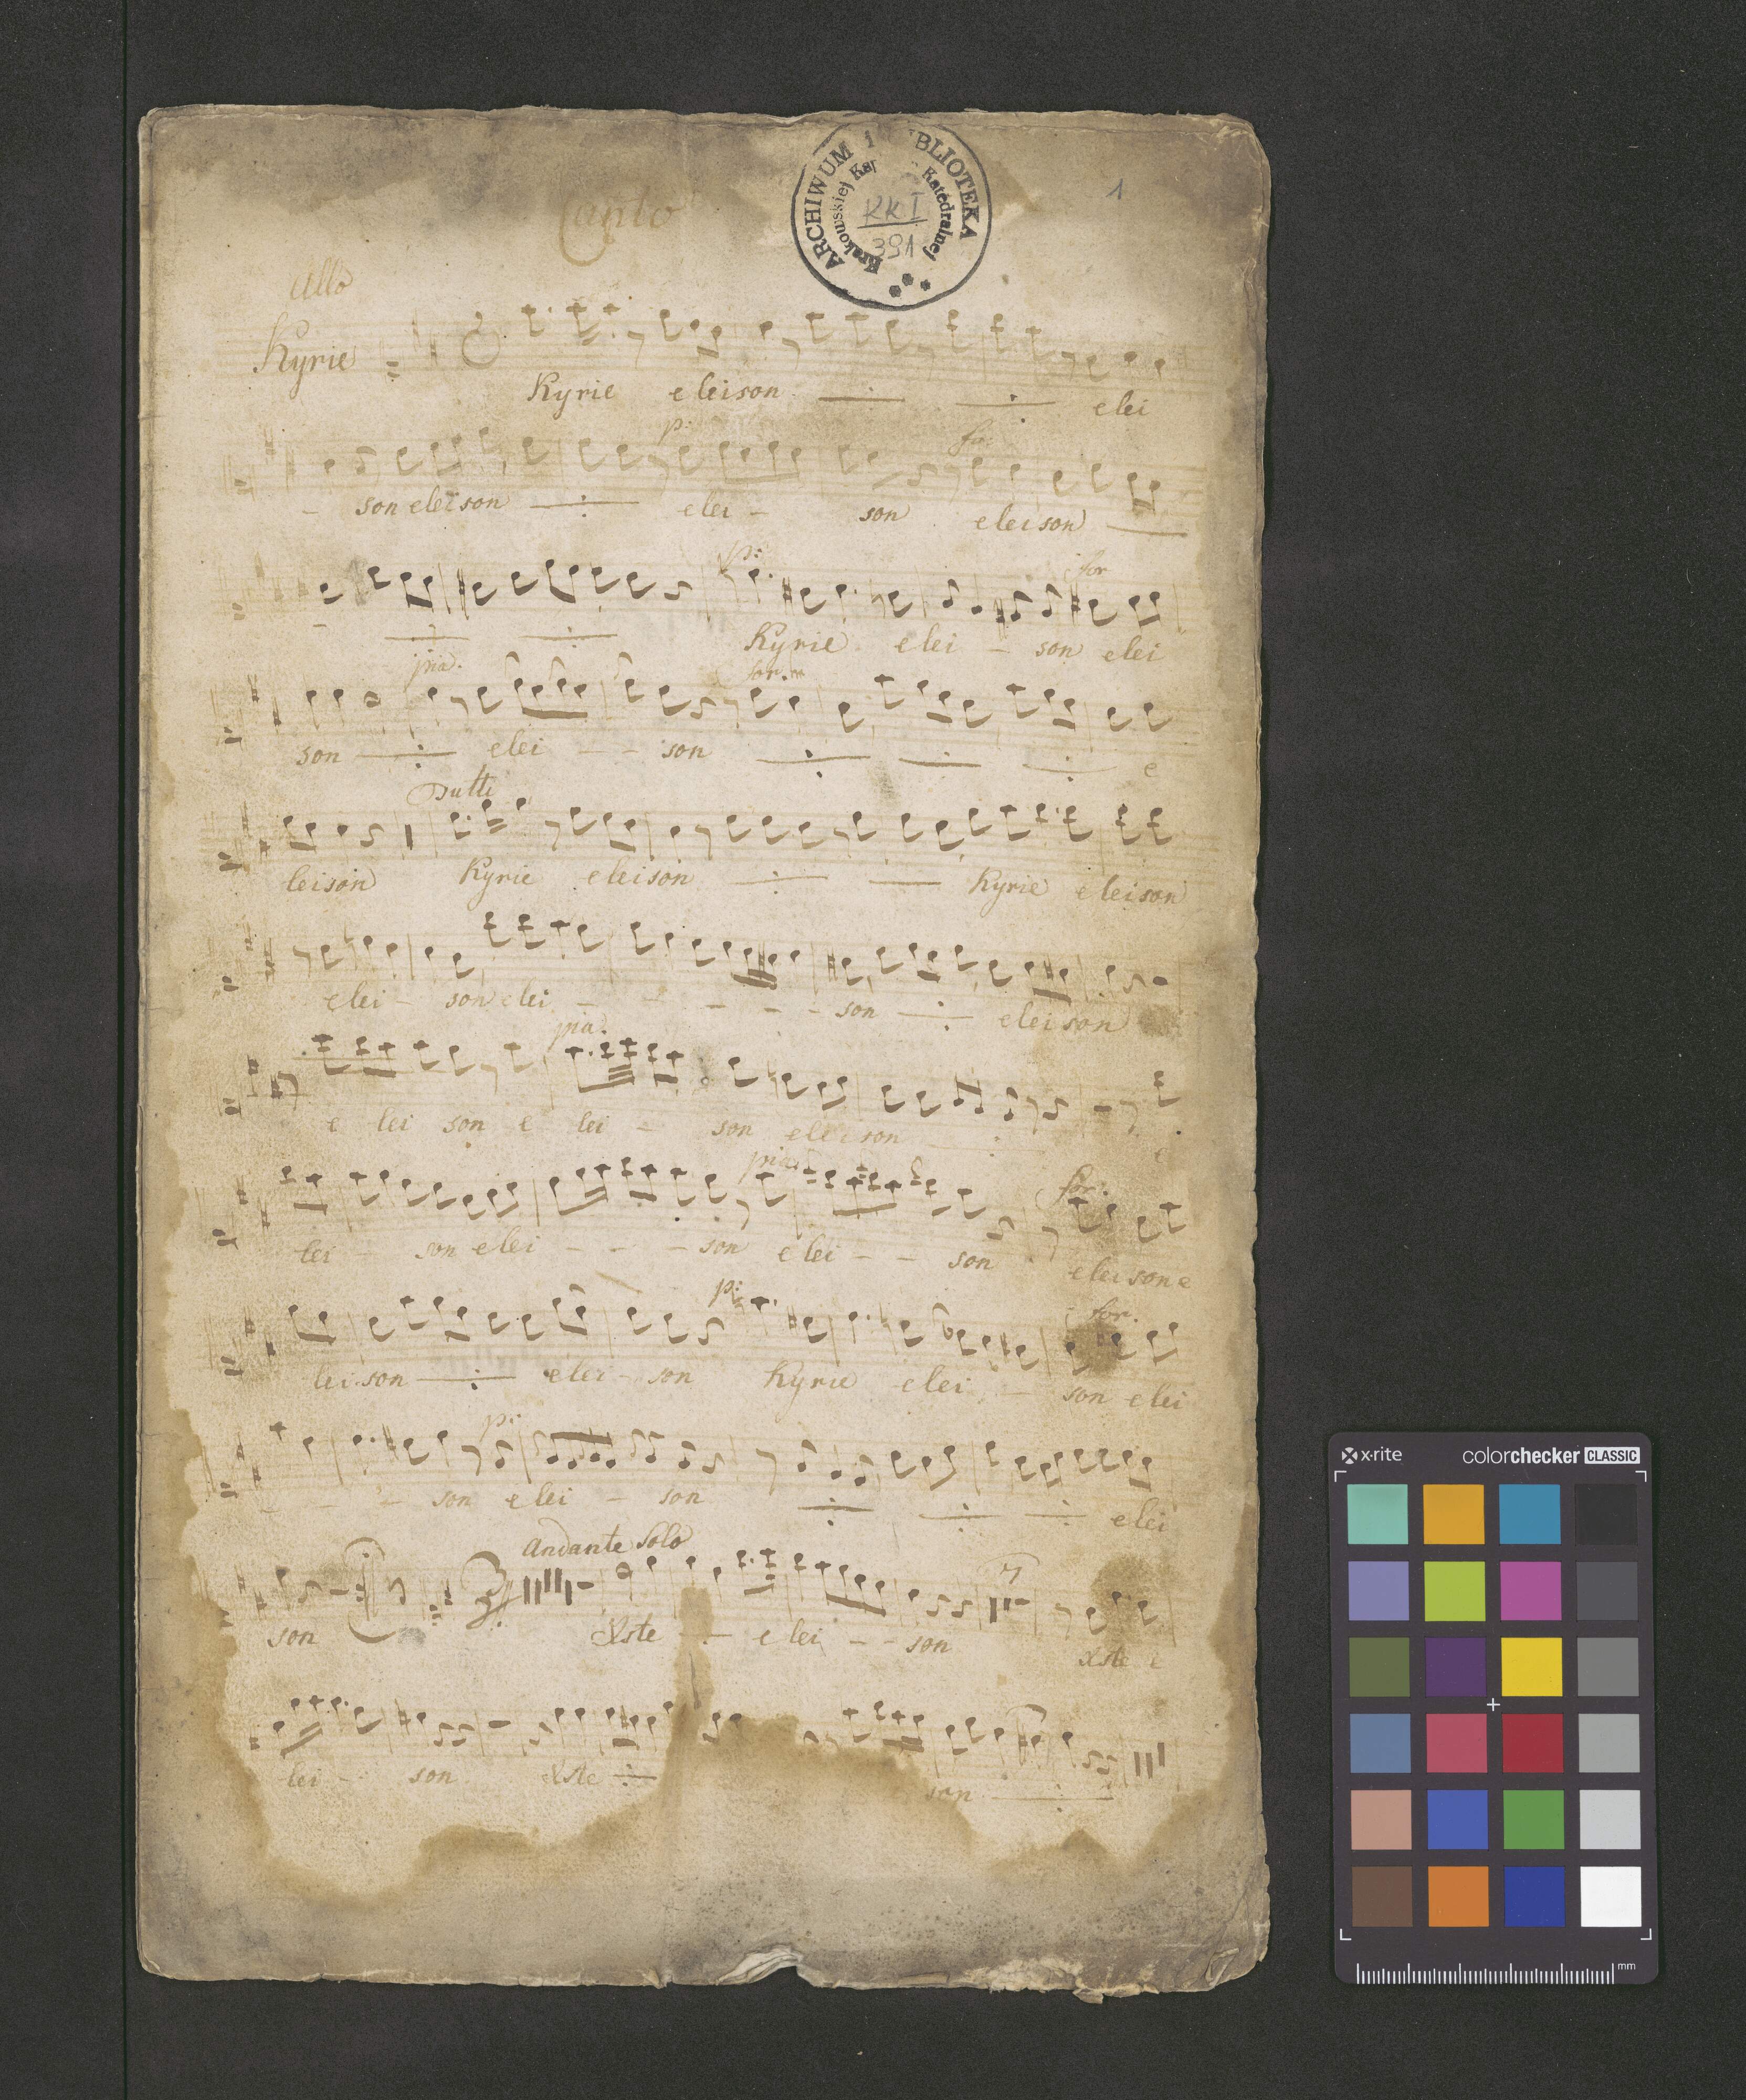 ARCHIWUM I BIBLIOTEKA
Krakowskiej Kap Katedralnej
KK I
391
1
Canto
Allo
Kyrie
Kyrie eleison elei
p: fo:
- son eleison elei - son eleison
p: for
Kyrie elei - son elei
pia. for.
son elei - - son e
Tutti
leison Kyrie eleison Kyrie eleison
elei - son elei - - - - - son eleison
pia:
e lei son e lei - son eleison
pia: for:
lei - son elei - - - son elei - - son eleison e
p: for.
leison elei - son Kyrie elei - son elei
p:
- - son elei - son elei
Andante Solo
son Xste - - elei - - son Xste e
lei - son Xste son
x-rite colorchecker CLASSIC
mm